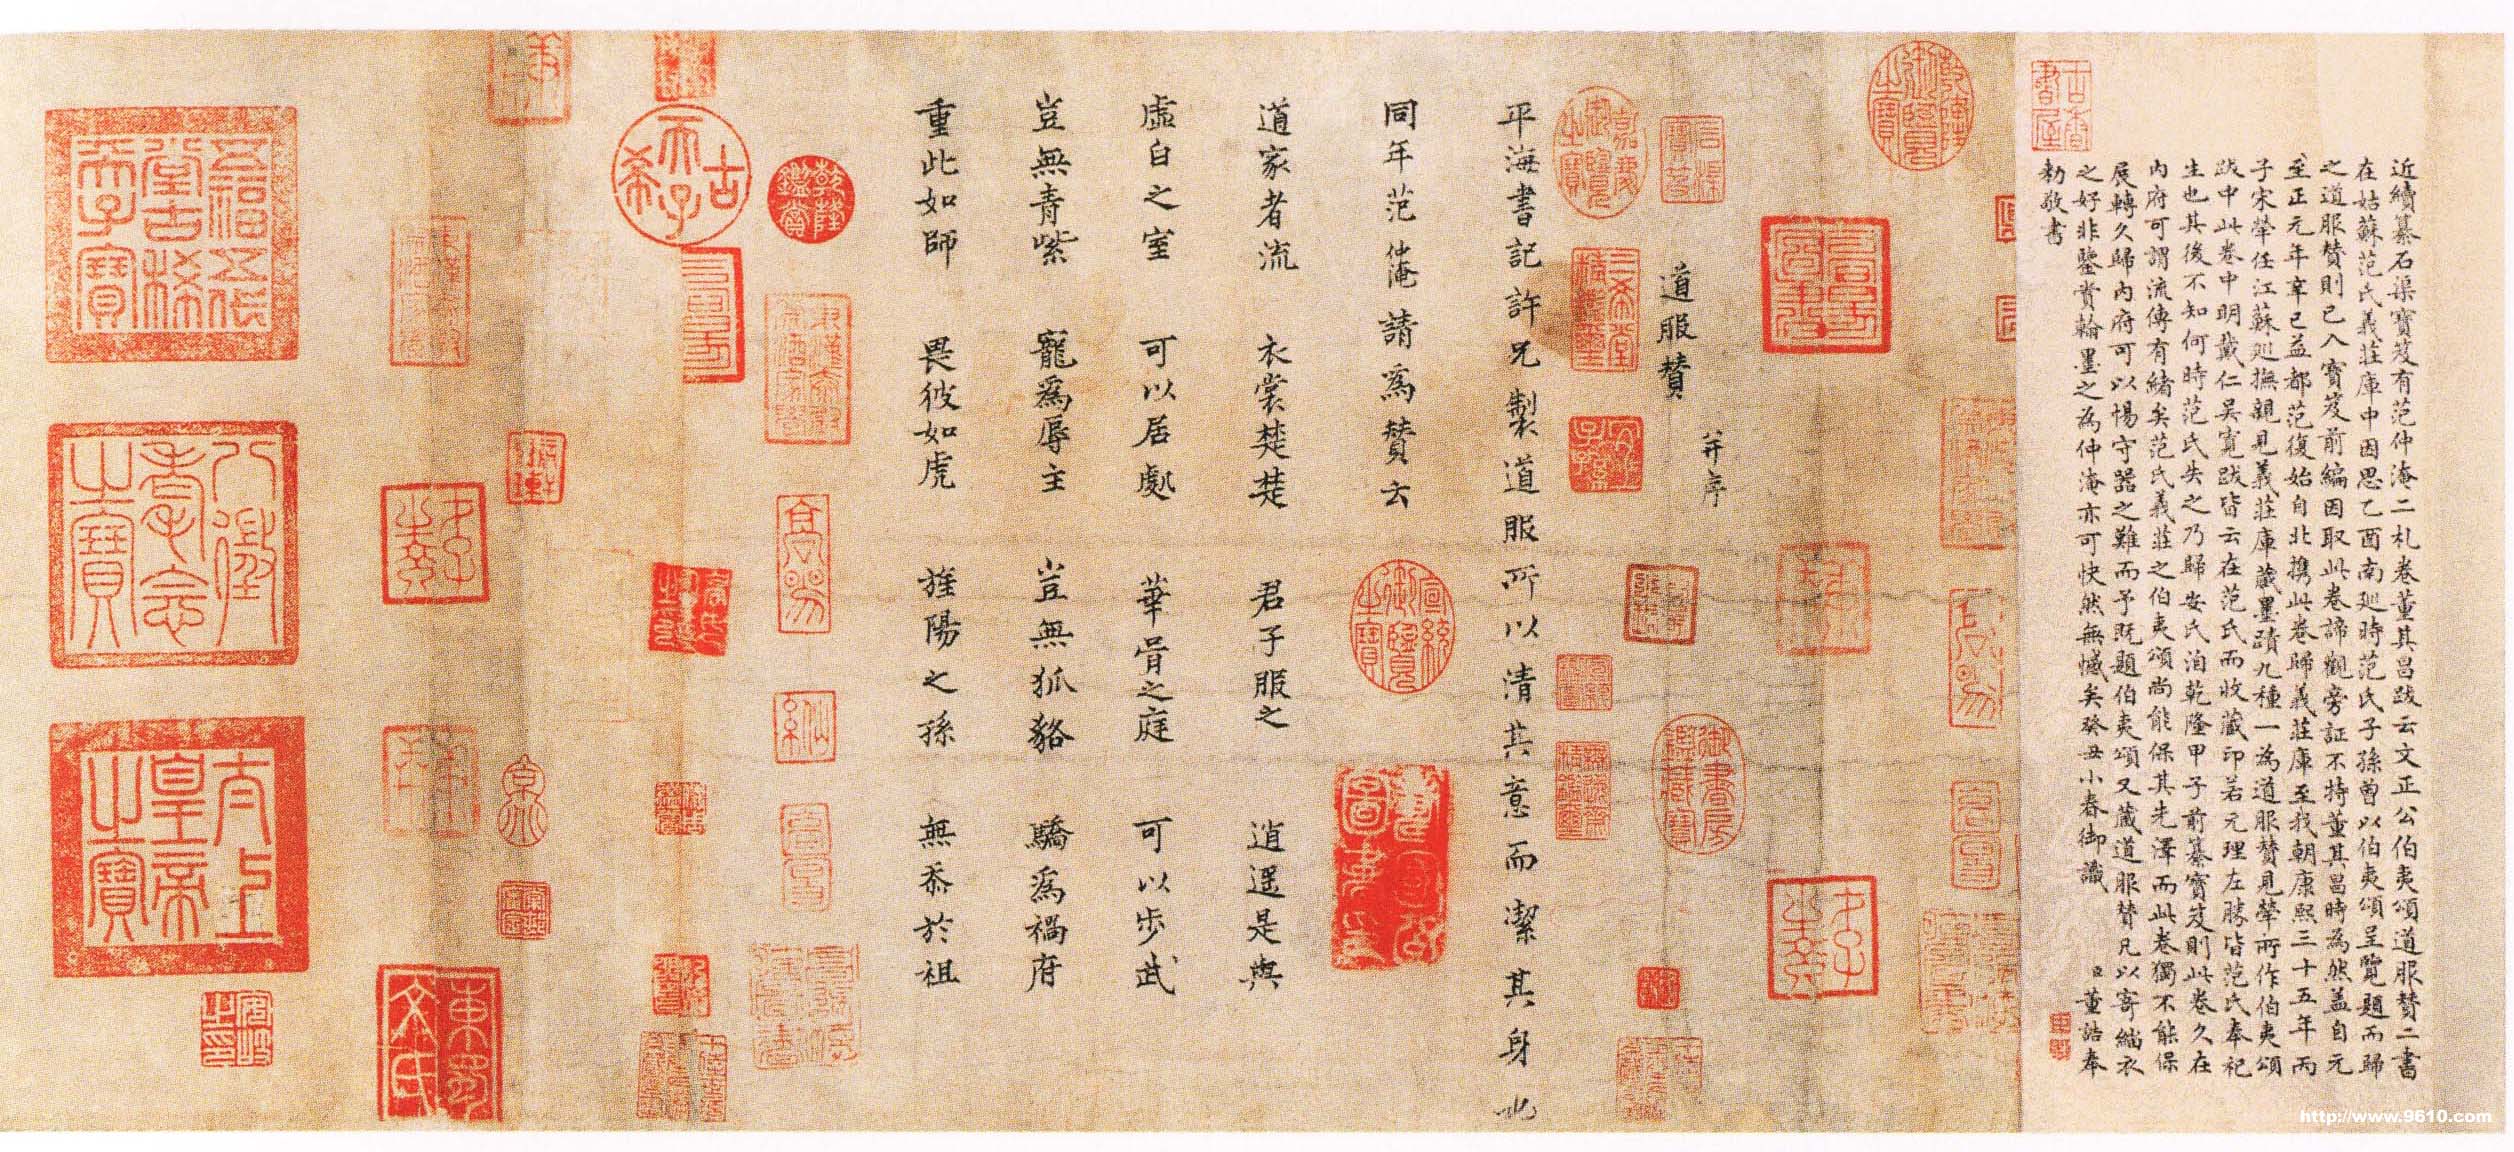 近續纂石渠寶笈有范仲淹二札卷董其昌跋云文正公伯夷頌道服贊二書
在姑蘇范氏義莊庫中因思乙酉南廵時范氏子孫曾以伯夷頌呈覽題而歸
之道服贊則已入寶笈前編因取此卷諦觀旁証不特董其昌時為然蓋自元
至正元年辛巳益都范復始自北攜此卷歸義莊庫至我朝康熙三十五年丙
子宋犖任江蘇廵撫親見義莊庫藏墨蹟九種一為道服贊見犖所作伯夷頌
跋中此卷中明戴仁吳寬跋皆云在范氏而收藏印若元理左勝皆范氏奉祀
生也其後不知何時范氏失之乃歸安氏洎乾隆甲子前纂寶笈則此卷久在
內府可謂流傳有緒矣范氏義莊之伯夷頌尚能保其先澤而此卷獨不能保
展轉久歸內府可以惕守器之難而予既題伯夷頌又藏道服贊凡以寄緇衣
之好非鑒賞翰墨之為仲淹亦可快然無憾矣癸丑小春御識
臣董誥奉
勅敬書
古香書屋
乾隆御覽之寶
嘉慶御覽之寶
石渠寶笈
三希堂精鑑璽
宜子孫
道服贊
并序
平海書記許兄製道服所以清其意而潔其身也
同年范仲淹請為贊云
道家者流 衣裳楚楚 君子服之 逍遥是與
虛白之室 可以居處 華胥之庭 可以步武
豈無青紫 寵為辱主 豈無狐貉 驕為禍府
重此如師 畏彼如虎 旌陽之孫 無忝於祖
宣統御覽之寶
御書房鑑藏寶
宣統鑑賞
無逸齋精鑑璽
乾隆鑑賞
古希天子
五福五代堂古稀天子寶
八徵耄念之寶
太上皇帝之寶
http://www.9610.com